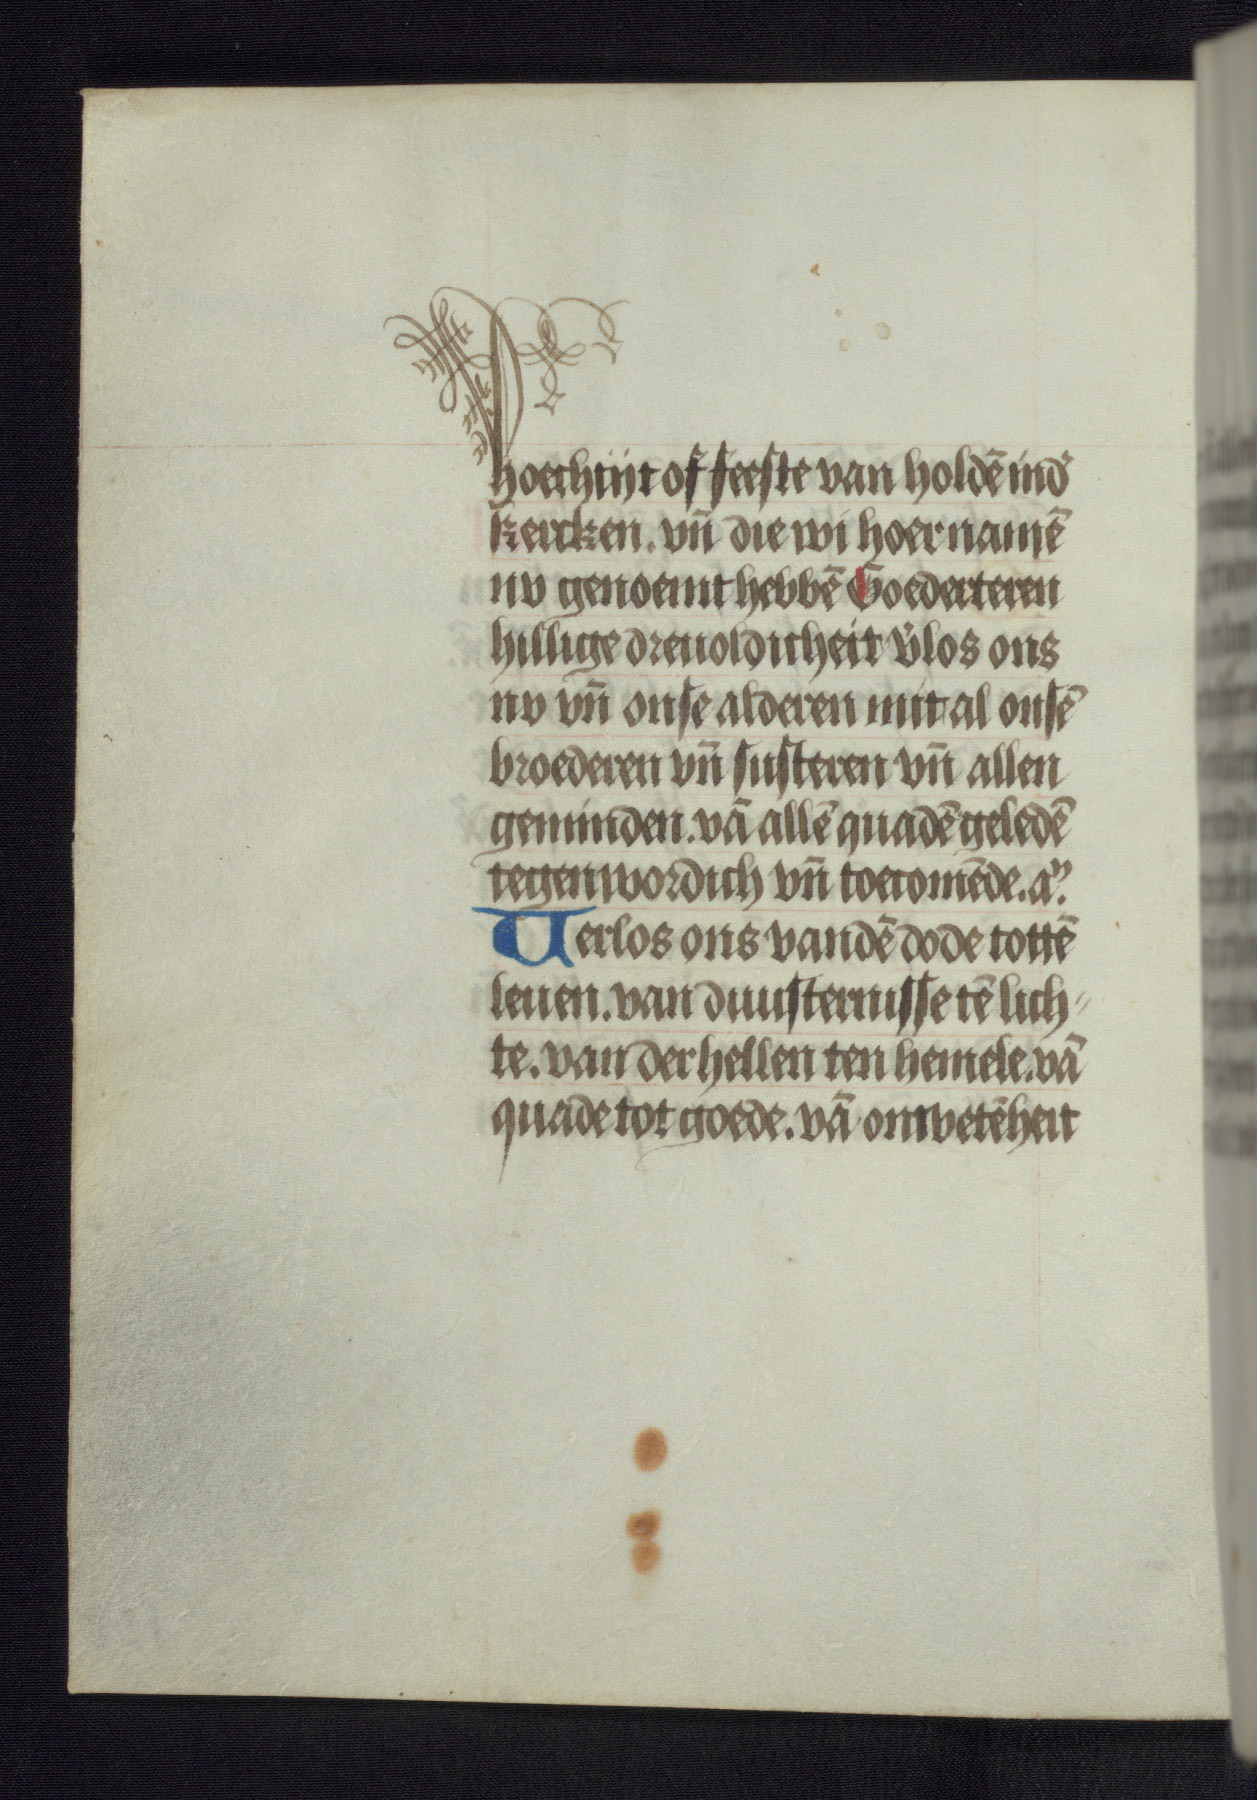 hoechtijt of feeste van holdē ind᷑
kercken. vn̄ die wi hoer namē
nv genoemt hebbē Goederteren
hillige dreuoldicheit v̄los ons
nv vn̄ onse alderen mit al onsē
broederen vn̄ susteren vn̄ allen
geminden. vā allē quadē geledē
tegenwordich vn̄ toecomēde. a᷑.
Verlos ons vandē dode tottē
leuen. van duusternisse tē lich⸗
te. van der hellen ten hemele. vā
quade tot goede. vā onwetēheit